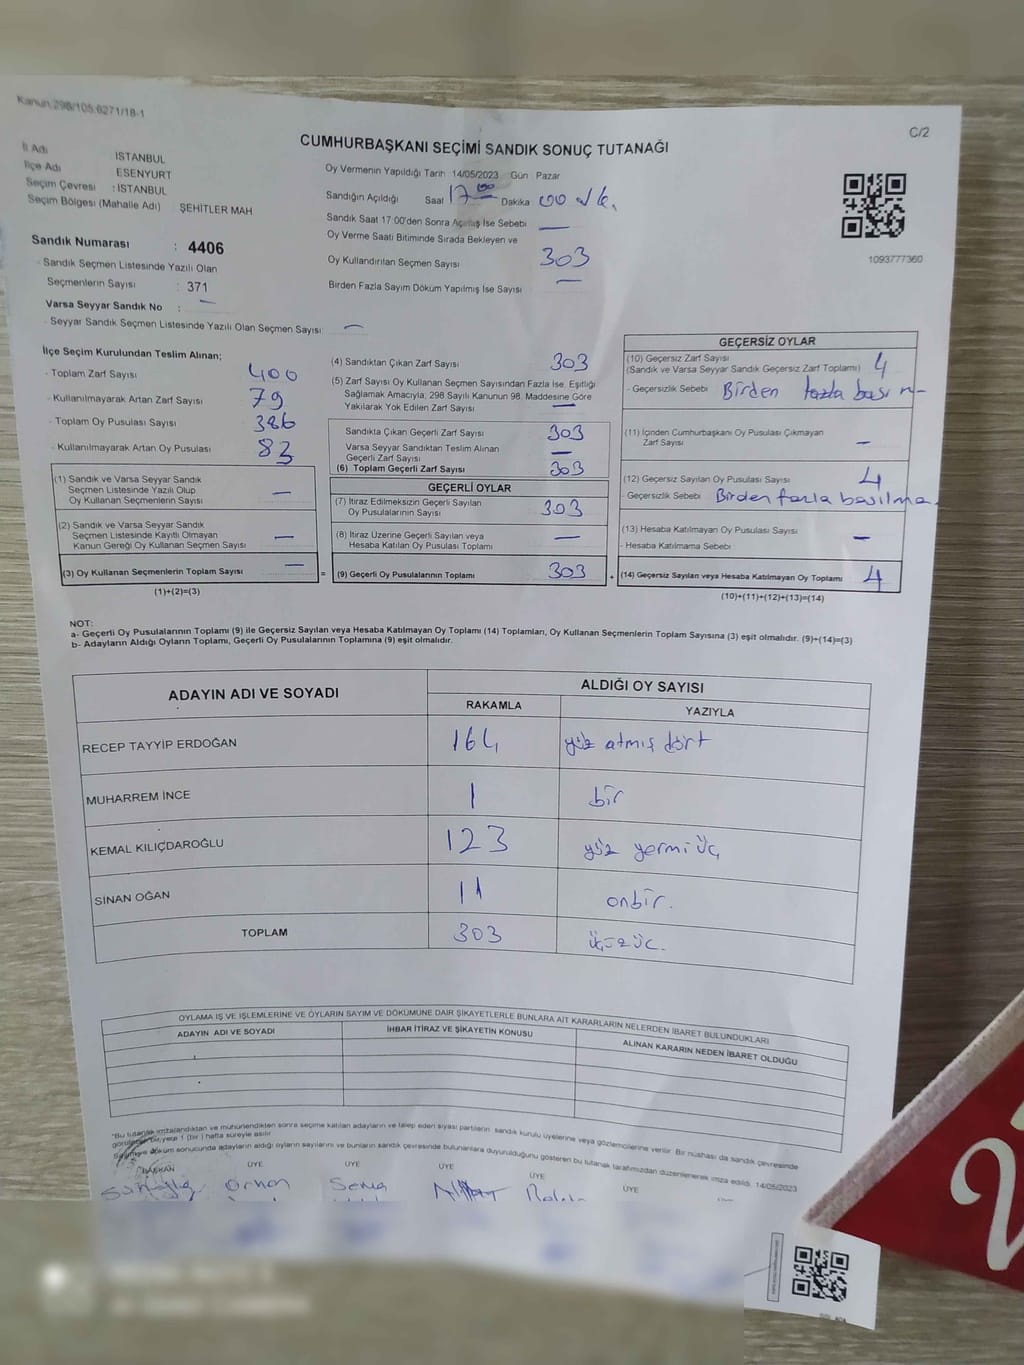 Kanun:298/105;6271/18-1
C/2
CUMHURBAŞKANI SEÇİMİ SANDIK SONUÇ TUTANAĞI
İl Adı İSTANBUL
İlçe Adı ESENYURT
Seçim Çevresi : İSTANBUL
Seçim Bölgesi (Mahalle Adı) ŞEHİTLER MAH
Sandık Numarası : 4406
- Sandık Seçmen Listesinde Yazılı Olan
Seçmenlerin Sayısı : 371
Varsa Seyyar Sandık No : —
- Seyyar Sandık Seçmen Listesinde Yazılı Olan Seçmen Sayısı: —
Oy Vermenin Yapıldığı Tarih 14/05/2023 Gün Pazar
Sandığın Açıldığı Saat 17 00 Dakika 00 dk.
Sandık Saat 17:00'den Sonra Açılmış İse Sebebi —
Oy Verme Saati Bitiminde Sırada Bekleyen ve
Oy Kullandırılan Seçmen Sayısı 303
Birden Fazla Sayım Döküm Yapılmış İse Sayısı —
1093777360
İlçe Seçim Kurulundan Teslim Alınan;
- Toplam Zarf Sayısı 400
- Kullanılmayarak Artan Zarf Sayısı 79
- Toplam Oy Pusulası Sayısı 386
- Kullanılmayarak Artan Oy Pusulası 83
(1) Sandık ve Varsa Seyyar Sandık
Seçmen Listesinde Yazılı Olup
Oy Kullanan Seçmenlerin Sayısı —
(2) Sandık ve Varsa Seyyar Sandık
Seçmen Listesinde Kayıtlı Olmayan
Kanun Gereği Oy Kullanan Seçmen Sayısı —
(3) Oy Kullanan Seçmenlerin Toplam Sayısı — =
(1)+(2)=(3)
(4) Sandıktan Çıkan Zarf Sayısı 303
(5) Zarf Sayısı Oy Kullanan Seçmen Sayısından Fazla İse, Eşitliği
Sağlamak Amacıyla; 298 Sayılı Kanunun 98. Maddesine Göre
Yakılarak Yok Edilen Zarf Sayısı —
Sandıkta Çıkan Geçerli Zarf Sayısı 303
Varsa Seyyar Sandıktan Teslim Alınan
Geçerli Zarf Sayısı —
(6) Toplam Geçerli Zarf Sayısı 303
GEÇERLİ OYLAR
(7) İtiraz Edilmeksizin Geçerli Sayılan
Oy Pusulalarının Sayısı 303
(8) İtiraz Üzerine Geçerli Sayılan veya
Hesaba Katılan Oy Pusulası Toplamı —
(9) Geçerli Oy Pusulalarının Toplamı 303 +
GEÇERSİZ OYLAR
(10) Geçersiz Zarf Sayısı
(Sandık ve Varsa Seyyar Sandık Geçersiz Zarf Toplamı) 4
- Geçersizlik Sebebi Birden fazla basın-
(11) İçinden Cumhurbaşkanı Oy Pusulası Çıkmayan
Zarf Sayısı —
(12) Geçersiz Sayılan Oy Pusulası Sayısı 4
- Geçersizlik Sebebi Birden fazla basılma.
(13) Hesaba Katılmayan Oy Pusulası Sayısı
- Hesaba Katılmama Sebebi —
(14) Geçersiz Sayılan veya Hesaba Katılmayan Oy Toplamı 4
(10)+(11)+(12)+(13)=(14)
NOT:
a- Geçerli Oy Pusulalarının Toplamı (9) ile Geçersiz Sayılan veya Hesaba Katılmayan Oy Toplamı (14) Toplamları, Oy Kullanan Seçmenlerin Toplam Sayısına (3) eşit olmalıdır. (9)+(14)=(3)
b- Adayların Aldığı Oyların Toplamı, Geçerli Oy Pusulalarının Toplamına (9) eşit olmalıdır.
ADAYIN ADI VE SOYADI
ALDIĞI OY SAYISI
RAKAMLA YAZIYLA
RECEP TAYYİP ERDOĞAN 164 yüz atmış dört
MUHARREM İNCE 1 bir
KEMAL KILIÇDAROĞLU 123 yüz yermi üç
SİNAN OĞAN 11 onbir.
TOPLAM 303
OYLAMA İŞ VE İŞLEMLERİNE VE OYLARIN SAYIM VE DÖKÜMÜNE DAİR ŞİKAYETLERLE BUNLARA AİT KARARLARIN NELERDEN İBARET BULUNDUKLARI
ADAYIN ADI VE SOYADI
İHBAR İTİRAZ VE ŞİKAYETİN KONUSU
ALINAN KARARIN NEDEN İBARET OLDUĞU
*Bu tutanak imzalandıktan ve mühürlendikten sonra seçime katılan adayların ve talep eden siyasi partilerin sandık kurulu üyelerine veya gözlemcilerine verilir. Bir nüshası da sandık çevresinde
görülebilir bir yere 1 (bir) hafta süreyle asılır.
döküm sonucunda adayların aldığı oyların sayılarını ve bunların sandık çevresinde bulunanlara duyurulduğunu gösteren bu tutanak tarafımızdan düzenlenerek imza edildi. 14/05/2023
BAŞKAN ÜYE ÜYE ÜYE ÜYE ÜYE
Orhan Sema